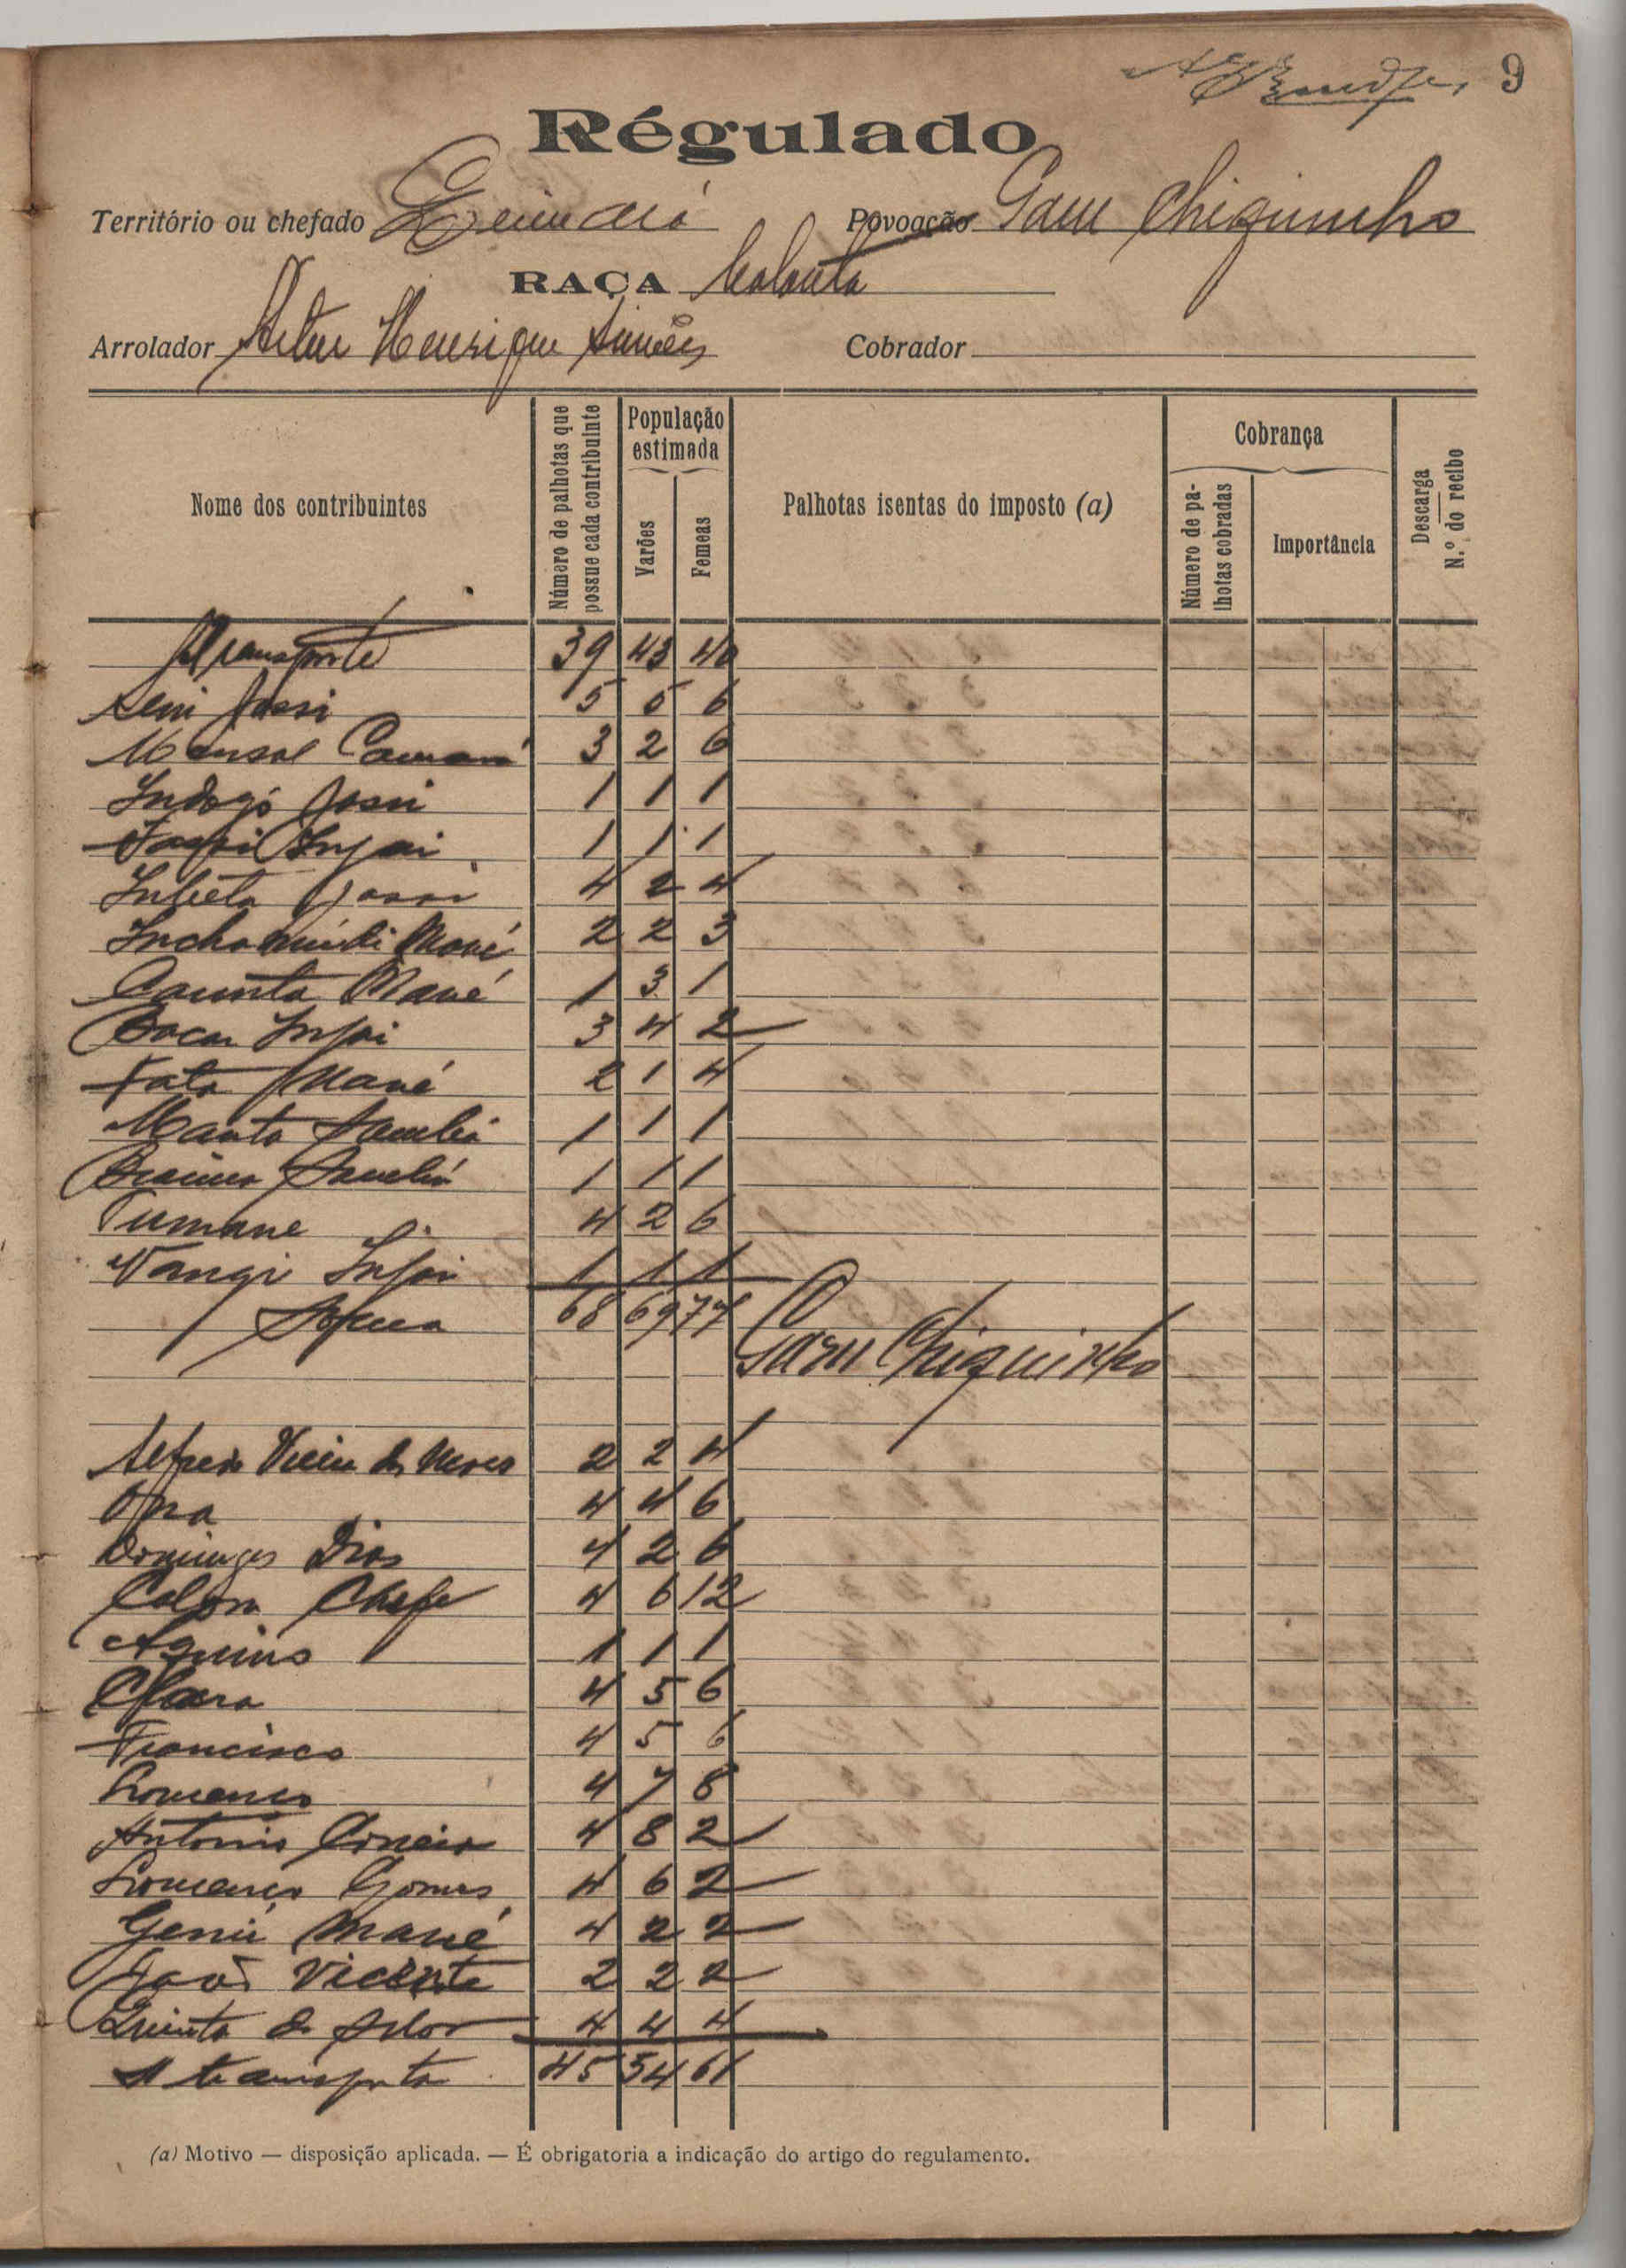 9
Régulado
Território ou chefado
Povoação Gam Chiquinho
RAÇA
Arrolador Artur Henrique Simões Cobrador
Nome dos contribuintes
Número de palhotas que possue cada contribuinte
População estimada
Varões
Femeas
Palhotas isentas do imposto (a)
Cobrança
Número de palhotas cobradas
Importância
Descarga
N.º do recibo
Transporte 39 43 40
Seni Jassi 5 5 6
Mansal Camará 3 2 6
Indogó Jassi 1 1 1
Injai 1 1 1
Jassi 4 2 4
Mané 2 2 3
Mané 1 3 1
Bocar Injai 3 4 2
Fata Mané 2 1 4
Manta 1 1 1
1 1 1
Tumane 4 2 6
Vangi Injai 1 1 1
Soma 68 69 77
Gam Chiquinho
Alfredo 2 2 4
4 4 6
Domingos Dias 4 2 6
Chefe 4 6 12
Aquino 1 1 1
Clara 4 5 6
Francisco 4 5 6
Lourenço 4 7 8
António Correia 4 8 2
Lourenço Gomes 4 6 2
Geniú Mané 4 2 2
João Vicente 2 2 2
Quinta 4 4 4
A transportar 45 54 61
(a) Motivo — disposição aplicada. — É obrigatoria a indicação do artigo do regulamento.